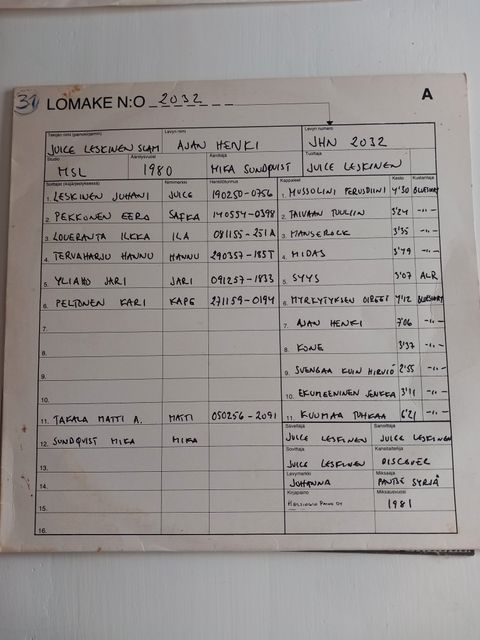 31 LOMAKE N:O 2032 A
Tekijän nimi (painokirjaimin) Levyn nimi Levyn numero
JUICE LESKINEN SLAM AJAN HENKI JHN 2032
Studio Äänitysvuosi Äänittäjä Tuottaja
MSL 1980 MIKA SUNDQVIST JUICE LESKINEN
Soittajat (kirjainjärjestyksessä) Nimimerkki Henkilötunnus Kappaleet Kesto Kustantaja
1. LESKINEN JUHANI JUICE 190250-0756 1. MUSSOLINI PERUSDIINI 4'30 BLUEBIRD
2. PEKKONEN EERO SAFKA 140554-0398 2. TAIVAAN TUULIIN 3'24 -"-
3. LOUERANTA ILKKA ILA 081155-251A 3. MANSEROCK 3'35 -"-
4. TERVAHARJU HANNU HANNU 290357-185T 4. MIDAS 3'49 -"-
5. YLIAHO JARI JARI 091257-1833 5. SYYS 3'07 ALR
6. PELTONEN KARI KAPE 271159-0194 6. MYRKYTYKSEN OIREET 4'12 BLUEBIRD
7. 7. AJAN HENKI 7'06 -"-
8. 8. KONE 3'37 -"-
9. 9. SVENGAA KUIN HIRVIÖ 2'55 -"-
10. 10. EKUMEENINEN JENKKA 3'11 -"-
11. TAKALA MATTI A. MATTI 050256-2091 11. KUUMAA TUHKAA 6'21 -"-
12. SUNDQVIST MIKA MIKA Säveltäjä Sanoittaja
JUICE LESKINEN JUICE LESKINEN
13. Sovittaja Kansitaiteilija
JUICE LESKINEN DISCOVER
14. Levymerkki Miksaaja
JOHANNA PANTSE SYRJÄ
15. Kirjapaino Miksausvuosi
HELSINGIN PAINO OY 1981
16.